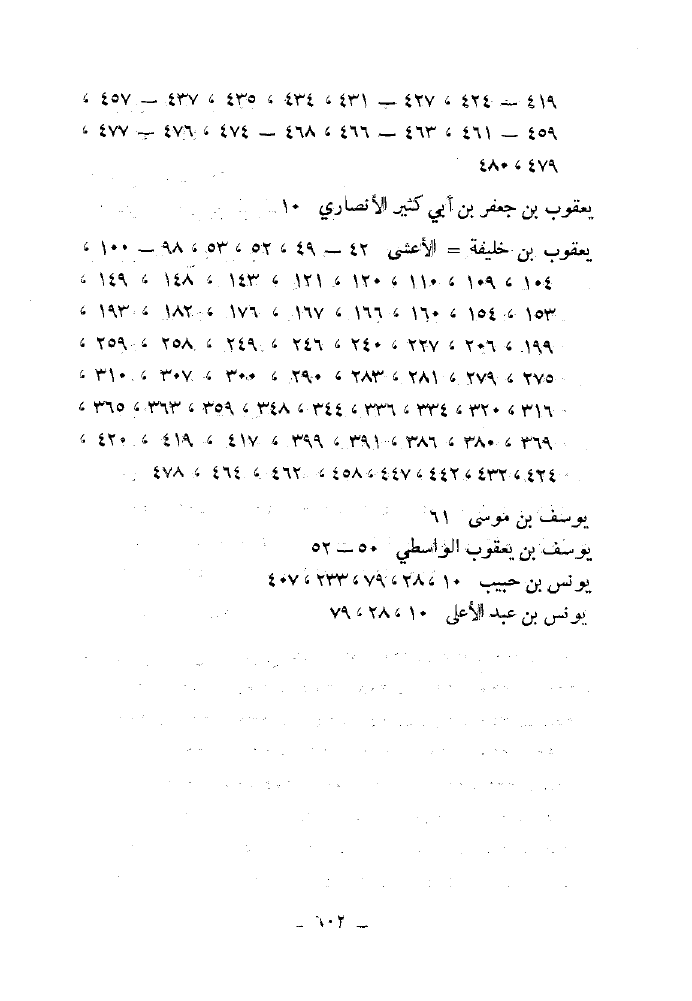 ٤١٩ – ٤٢٤ ، ٤٢٧ – ٤٣١ ، ٤٣٤ ، ٤٣٥ ، ٤٣٧ – ٤٥٧ ،
٤٥٩ – ٤٦١ ، ٤٦٣ – ٤٦٦ ، ٤٦٨ – ٤٧٤ ، ٤٧٦ – ٤٧٧ ،
٤٧٩ ، ٤٨٠
يعقوب بن جعفر بن أبي كثير الأنصاري ١٠
يعقوب بن خليفة = الأعشى ٤٢ – ٤٩ ، ٥٢ ، ٥٣ ، ٩٨ – ١٠٠ ،
١٠٤ ، ١٠٩ ، ١١٠ ، ١٢٠ ، ١٢١ ، ١٤٣ ، ١٤٨ ، ١٤٩ ،
١٥٣ ، ١٥٤ ، ١٦٠ ، ١٦٦ ، ١٦٧ ، ١٧٦ ، ١٨٢ ، ١٩٣ ،
١٩٩ ، ٢٠٦ ، ٢٢٧ ، ٢٤٠ ، ٢٤٦ ، ٢٤٩ ، ٢٥٨ ، ٢٥٩ ،
٢٧٥ ، ٢٧٩ ، ٢٨١ ، ٢٨٣ ، ٢٩٠ ، ٣٠٠ ، ٣٠٧ ، ٣١٠ ،
٣١٦ ، ٣٢٠ ، ٣٣٤ ، ٣٣٦ ، ٣٤٤ ، ٣٤٨ ، ٣٥٩ ، ٣٦٣ ، ٣٦٥ ،
٣٦٩ ، ٣٨٠ ، ٣٨٦ ، ٣٩١ ، ٣٩٩ ، ٤١٧ ، ٤١٩ ، ٤٢٠ ،
٤٢٤ ، ٤٣٢ ، ٤٤٢ ، ٤٤٧ ، ٤٥٨ ، ٤٦٢ ، ٤٦٤ ، ٤٧٨
يوسف بن موسى ٦١
يوسف بن يعقوب الواسطي ٥٠ – ٥٢
يونس بن حبيب ١٠ ، ٢٨ ، ٧٩ ، ٢٣٣ ، ٤٠٧
يونس بن عبد الأعلى ١٠ ، ٢٨ ، ٧٩
– ٦٠٢ –